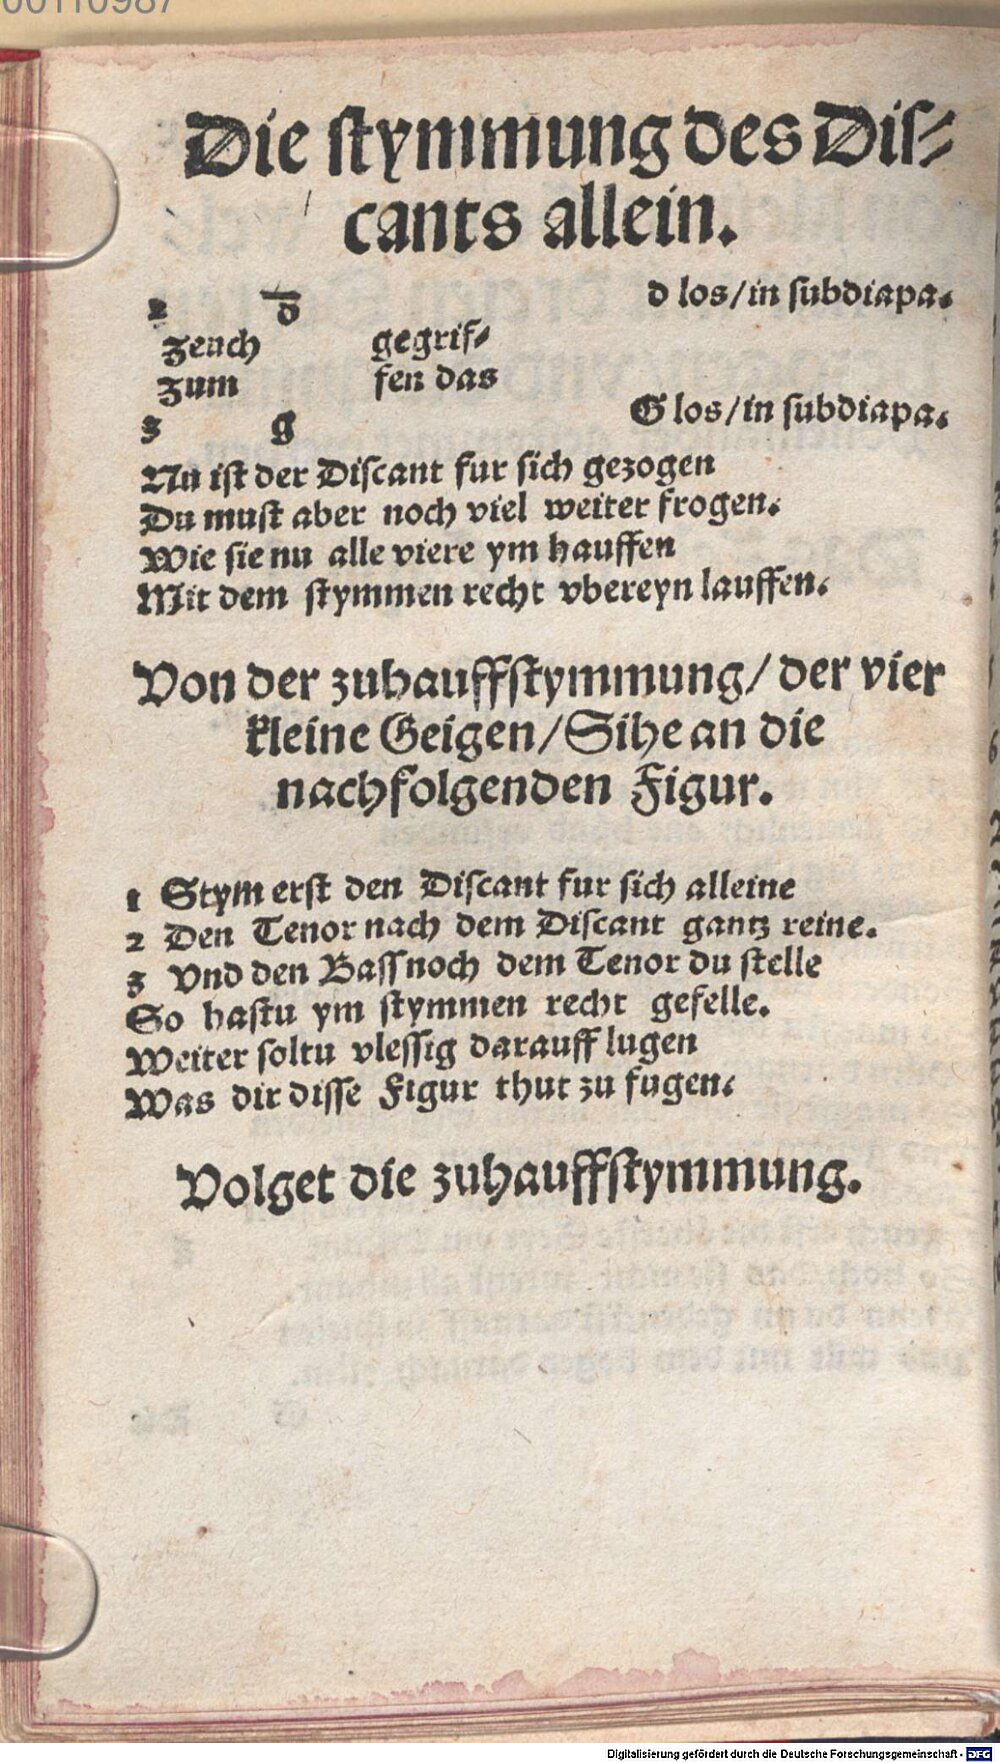 00110987
Die stymmung des Dis⸗
cants allein.
2 d̅ d los/in subdiapa.
zeuch gegrif⸗
zum fen das
3 g G los/in subdiapa.
Nu ist der Discant fur sich gezogen
Du must aber noch viel weiter frogen.
Wie sie nu alle viere ym hauffen
Mit dem stymmen recht vbereyn lauffen.
Von der zuhauffstymmung/ der vier
kleine Geigen/Sihe an die
nachfolgenden Figur.
1 Stym erst den Discant fur sich alleine
2 Den Tenor nach dem Discant gantz reine.
3 Vnd den Bass noch dem Tenor du stelle
So hastu ym stymmen recht gefelle.
Weiter soltu vlessig darauff lugen
Was dir disse Figur thut zu fugen.
Volget die zuhauffstymmung.
Digitalisierung gefördert durch die Deutsche Forschungsgemeinschaft - DFG